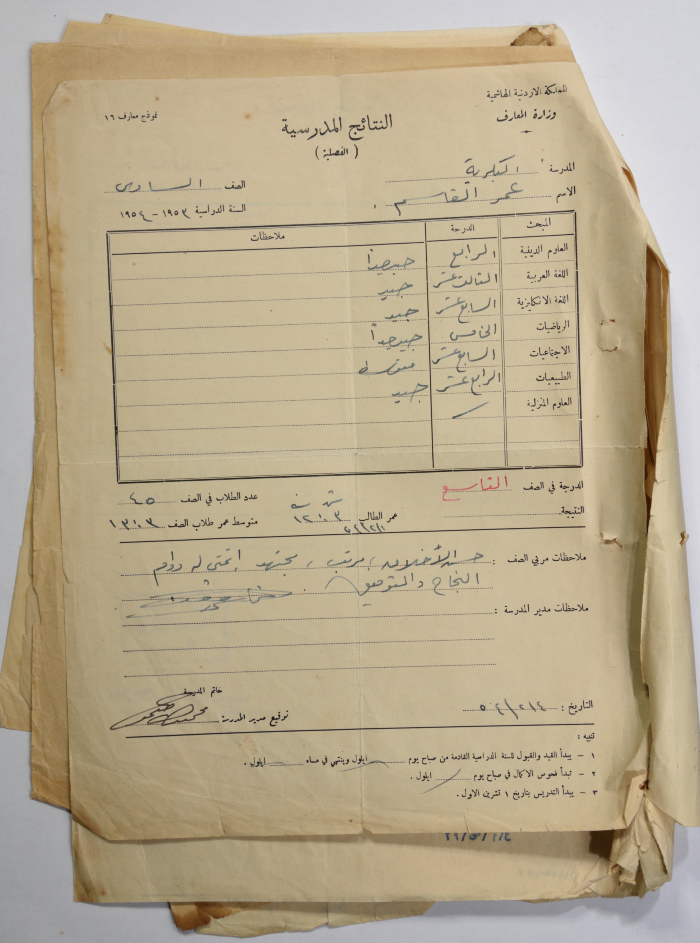 المملكة الاردنية الهاشمية
وزارة المعارف
نموذج معارف ١٦
النتائج المدرسية
( الفصلية )
المدرسة البكرية
الاسم عمر القاسم . الصف السادس
السنة الدراسية ١٩٥٣ - ١٩٥٤
المبحث الدرجة ملاحظات
العلوم الدينية الرابع جيد جداً
اللغة العربية الثالث عشر جيد
اللغة الانكليزية السابع عشر جيد
الرياضيات الخامس جيد جداً
الاجتماعيات السابع عشر متوسط
الطبيعيات الرابع عشر جيد
العلوم المنزلية
الدرجة في الصف التاسع عدد الطلاب في الصف ٤٥
النتيجة عمر الطالب ١٢:٠٣ متوسط عمر طلاب الصف ١٣:٠٣
شهر سنة
ملاحظات مربي الصف : حسن الأخلاق ، مرتب ، مجتهد أتمنى له دوام
النجاح والتوفيق .
ملاحظات مدير المدرسة :
خاتم المدرسة
توقيع مدير المدرسة :
التاريخ : ٥٤/٢/٤
تنبيه :
١ - يبدأ القيد والقبول للسنة الدراسية القادمة من صباح يوم ايلول وينتهي في مساء ايلول .
٢ - تبدأ فحوص الاكمال في صباح يوم ايلول .
٣ - يبدأ التدريس بتاريخ ١ تشرين الاول .